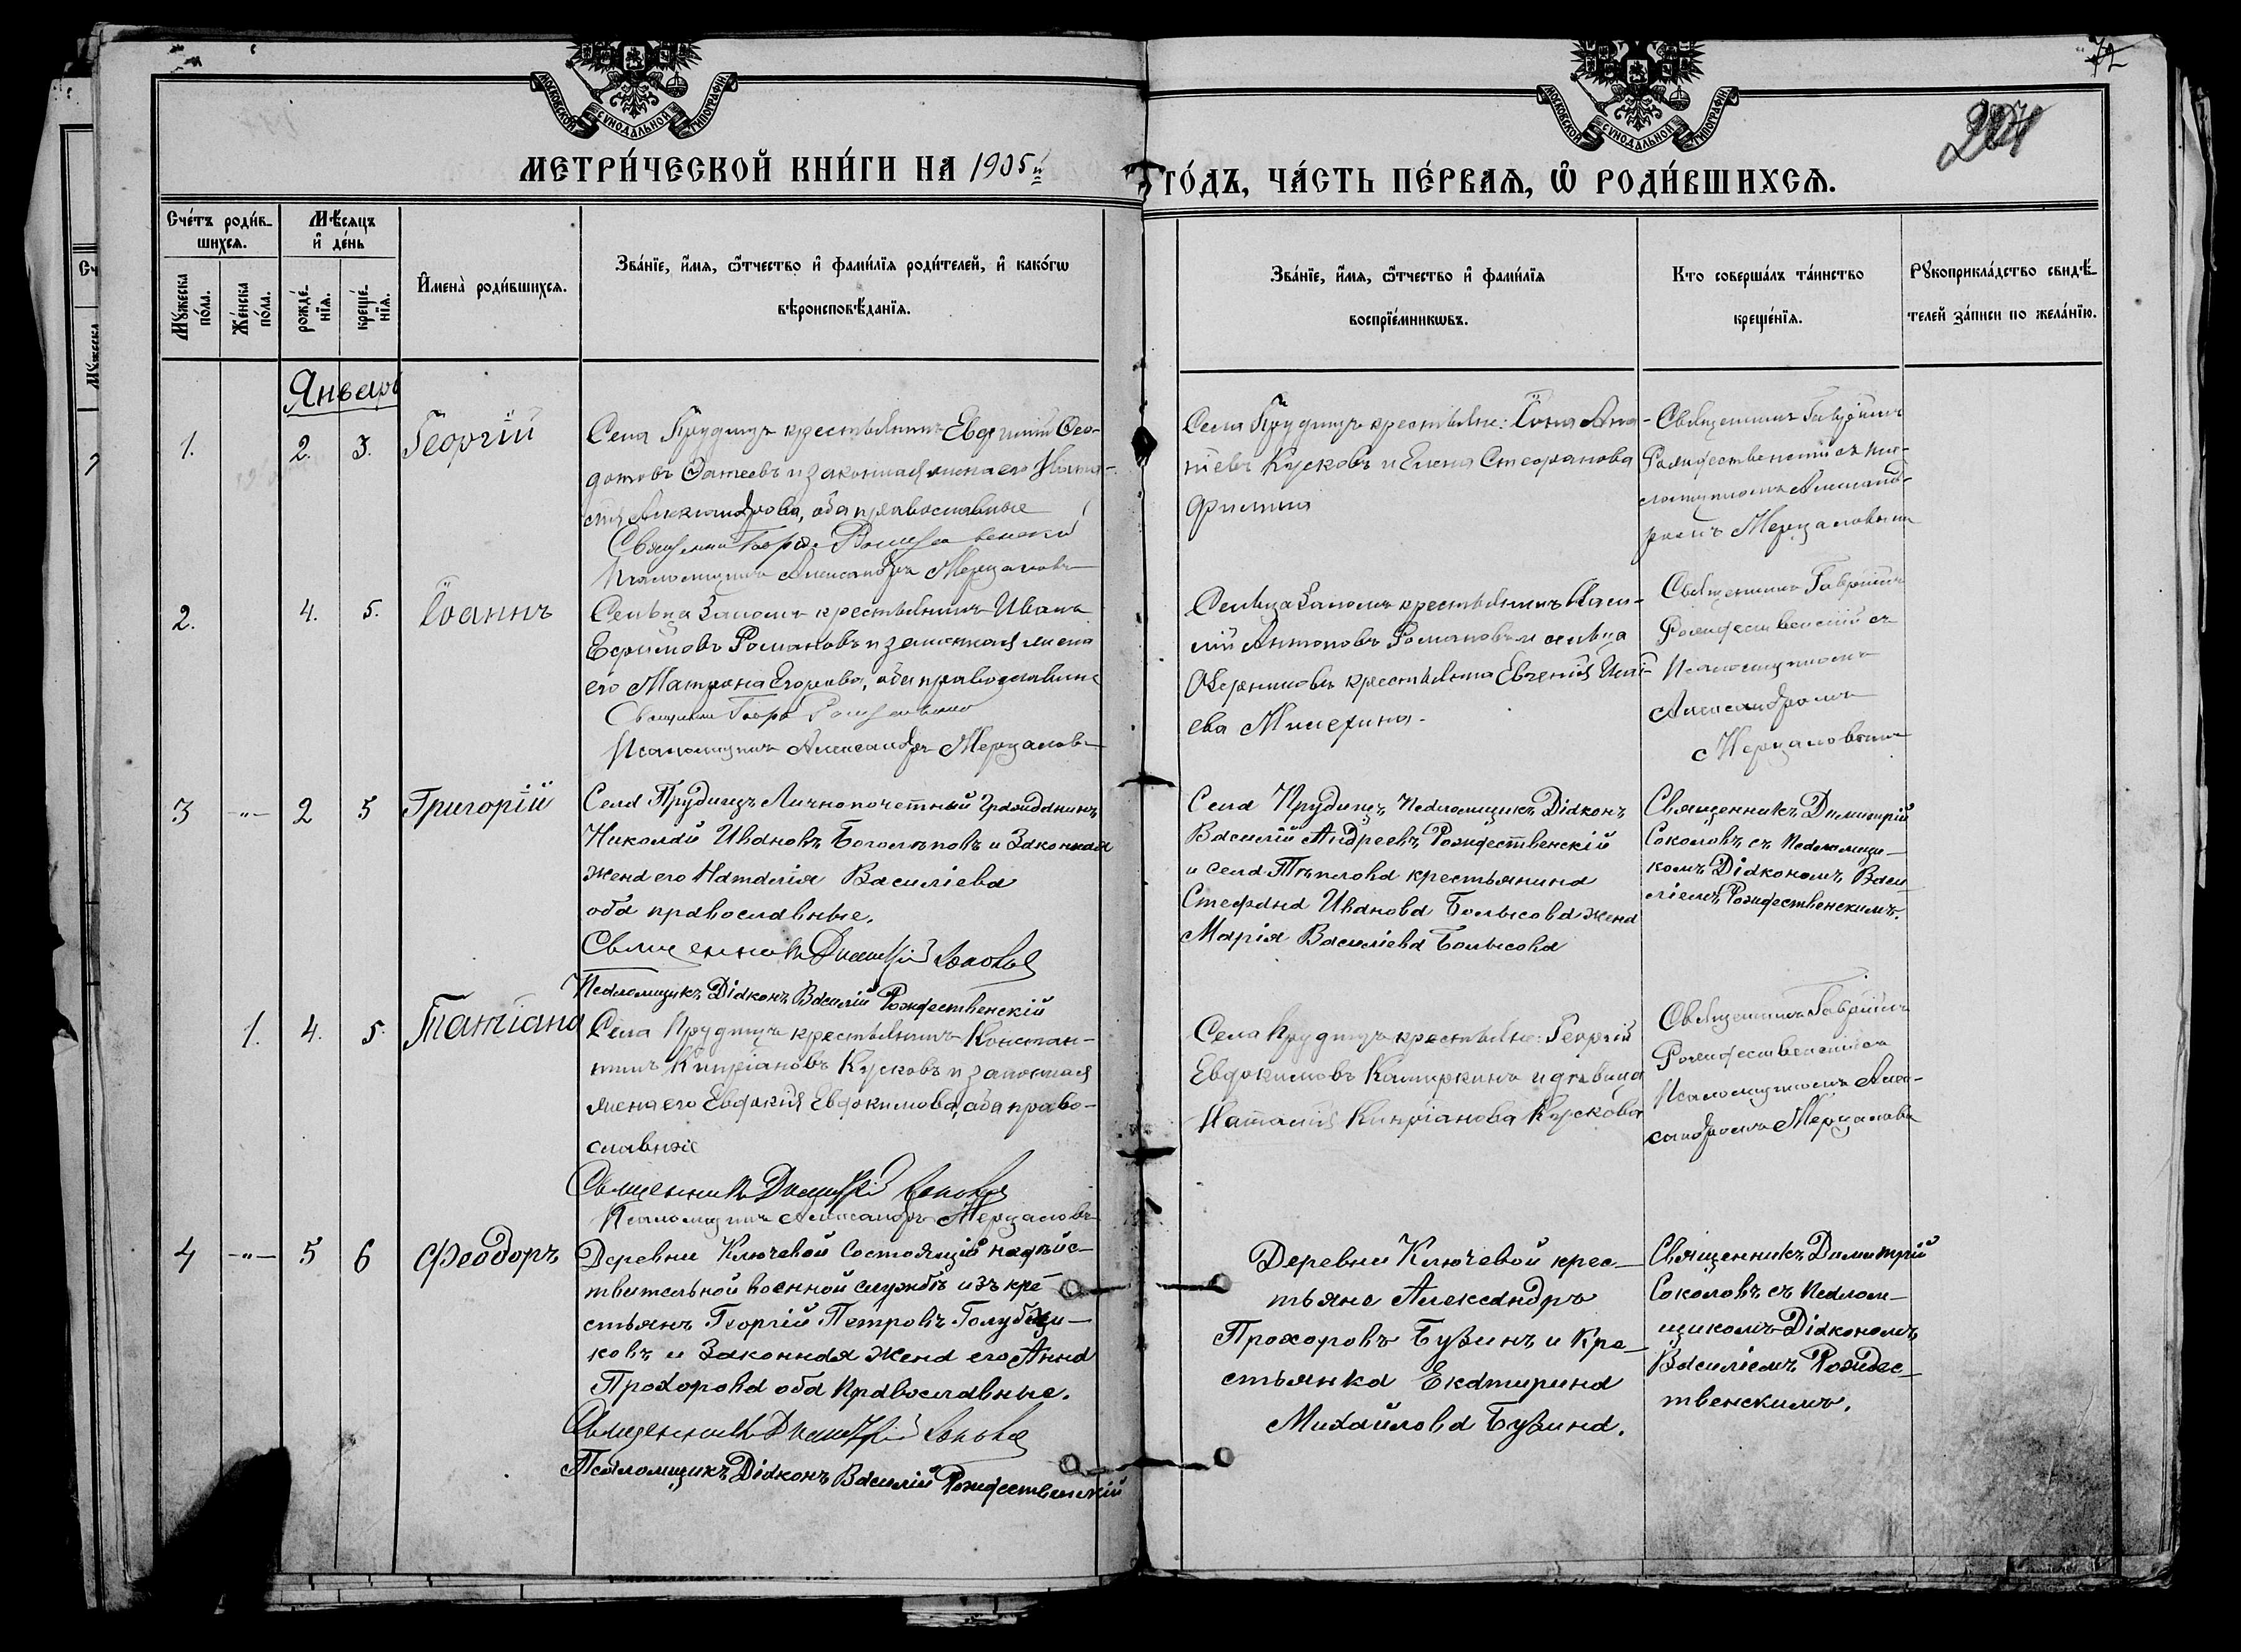 72
МОСКОВСКОЙ СѴНОДАЛЬНОЙ ТИПОГРАФІИ
МОСКОВСКОЙ СѴНОДАЛЬНОЙ ТИПОГРАФІИ
МЕТРИ́ЧЕСКОЙ КНИ́ГИ НА 1905й
ГО́ДЪ, ЧА́СТЬ ПЕ́РВАѦ, Ѡ РОДИ́ВШИХСѦ.
Сче́тъ роди́в-
шихсѧ.
Мѣ́сѧцъ
и҆ де́нь
Мꙋжеска
по́ла.
Же́нска
по́ла.
рожде́-
нїѧ.
креще́-
нїѧ.
И҆мена̀ роди́вшихсѧ.
Зва́нїе, и҆́мѧ, ѻ҆́тчество и҆ фами́лїѧ роди́телей, и҆ како́гѡ
вѣроисповѣ́данїѧ.
Зва́нїе, и҆́мѧ, ѻ҆́тчество и҆ фами́лїѧ
воспрїе́мникѡвъ.
Кто соверша́лъ та́инство
креще́нїѧ.
Рꙋкоприкла́дство свидѣ́-
телей за́писи по жела́нїю.
Январь
1. 2. 3. Георгій
Села Прудищъ крестьянинъ Евгеній Ѳео-
дотовъ и законная жена его
Александрова, оба православные
Священникъ
Псаломщикъ Александръ Мерцаловъ
Села Прудищъ крестьяне: Іона
Кусковъ и Елена Стефанова
Священникъ Гавріилъ
Рождественскій съ
псаломщикомъ Александ-
ромъ Мерцаловымъ
2. 4. 5. Іоаннъ
Сельца крестьянинъ Иванъ
Ефимовъ Романовъ и законная жена
его Матрона Егорова, оба православные
Священникъ
Псаломщикъ Александръ Мерцаловъ
Сельца крестьянинъ Васи-
лій Антоновъ Романовъ и сельца
крестьянка Евгенія
ева
Священникъ Гавріилъ
Рождественскій съ
Псаломщикомъ
Александромъ
Мерцаловымъ
3 -"- 2 5 Григорій
Села Прудищъ Личнопочетный гражданинъ
Николай Ивановъ Боголѣповъ и Законная
жена его Наталія Василіева
оба православные.
Священникъ Димитрій Соколовъ
Псаломщикъ Діаконъ Василій Рождественскій
Села Прудищъ Псаломщикъ Діаконъ
Василій Андреевъ Рождественскій
и села Тѣплова крестьянина
Стефана Иванова Болысова жена
Марія Василіева Болысова
Священникъ Димитрій
Соколовъ съ Псаломщи-
комъ Діакономъ Васи-
ліемъ Рождественскимъ.
1. 4. 5. Татіана
Села Прудищъ крестьянинъ Констан-
тинъ Кипріановъ Кусковъ и законная
жена его Евдокія Евдокимова, оба право-
славные
Священникъ Димитрій Соколовъ
Псаломщикъ Александръ Мерцаловъ
Села Прудищъ крестьяне: Георгій
Евдокимовъ Калиркинъ и дѣвица
Наталія Кипріанова Кускова
Священникъ Гавріилъ
Рождественскій съ
Псаломщикомъ Алек-
сандромъ Мерцаловымъ
4 -"- 5 6 Феодоръ
Деревни Ключевой Состоящій на дѣйс-
твительной военной службѣ изъ кре-
стьянъ Георгій Петровъ
ковъ и Законная жена его Анна
Прохорова оба Православные.
Священникъ Димитрій Соколовъ
Псаломщикъ Діаконъ Василій Рождественскій
Деревни Ключевой крес-
тьяне Александръ
Прохоровъ Бузинъ и Кре-
стьянка Екатирина
Михайлова Бузина.
Священникъ Димитрій
Соколовъ съ Псалом-
щикомъ Діакономъ
Василіемъ Рождес-
твенскимъ.